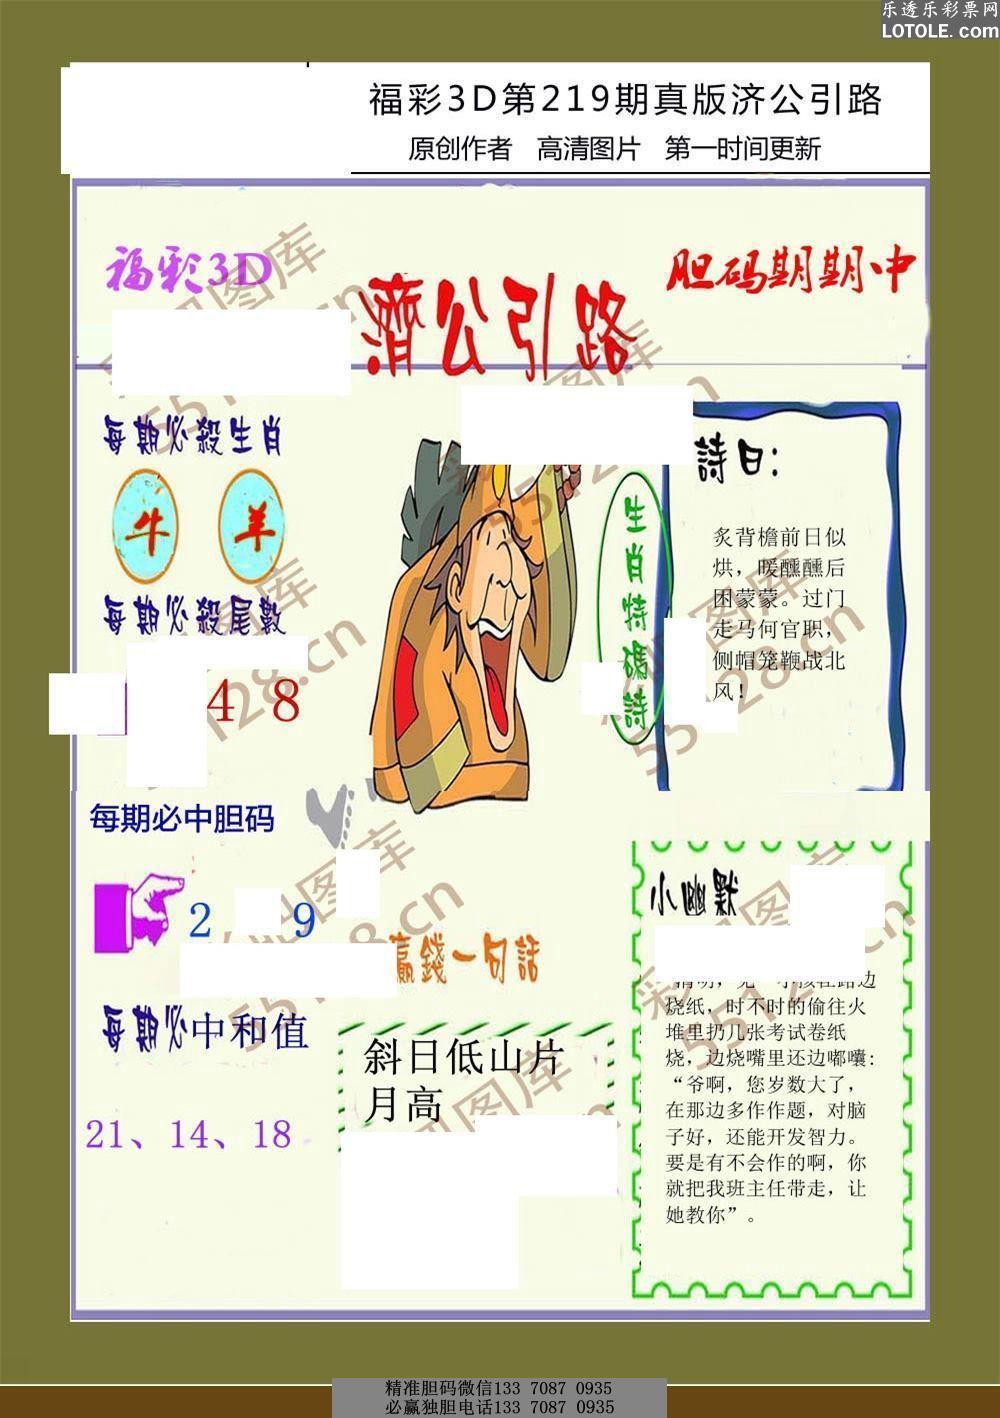 乐透乐彩票网
LOTOLE.com
福彩3D第219期真版济公引路
原创作者 高清图片 第一时间更新
福彩3D
濟公引路
胆码期期中
每期必殺生肖
牛 羊
每期必殺尾數
4 8
每期必中胆码
2 9
每期必中和值
21、14、18
生肖特碼詩
詩曰：
炙背檐前日似
烘，暖醺醺后
困蒙蒙。过门
走马何官职，
侧帽笼鞭战北
风！
贏錢一句話
斜日低山片
月高
小幽默
烧纸，时不时的偷往火
堆里扔几张考试卷纸
烧，边烧嘴里还边嘟囔：
“爷啊，您岁数大了，
在那边多作作题，对脑
子好，还能开发智力。
要是有不会作的啊，你
就把我班主任带走，让
她教你”。
彩吧图库
55128.cn
精准胆码微信133 7087 0935
必赢独胆电话133 7087 0935